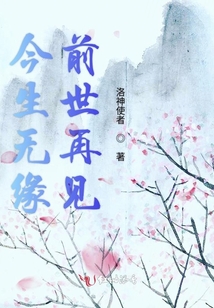 前世再见
今生无缘
洛神使者 ◎ 著